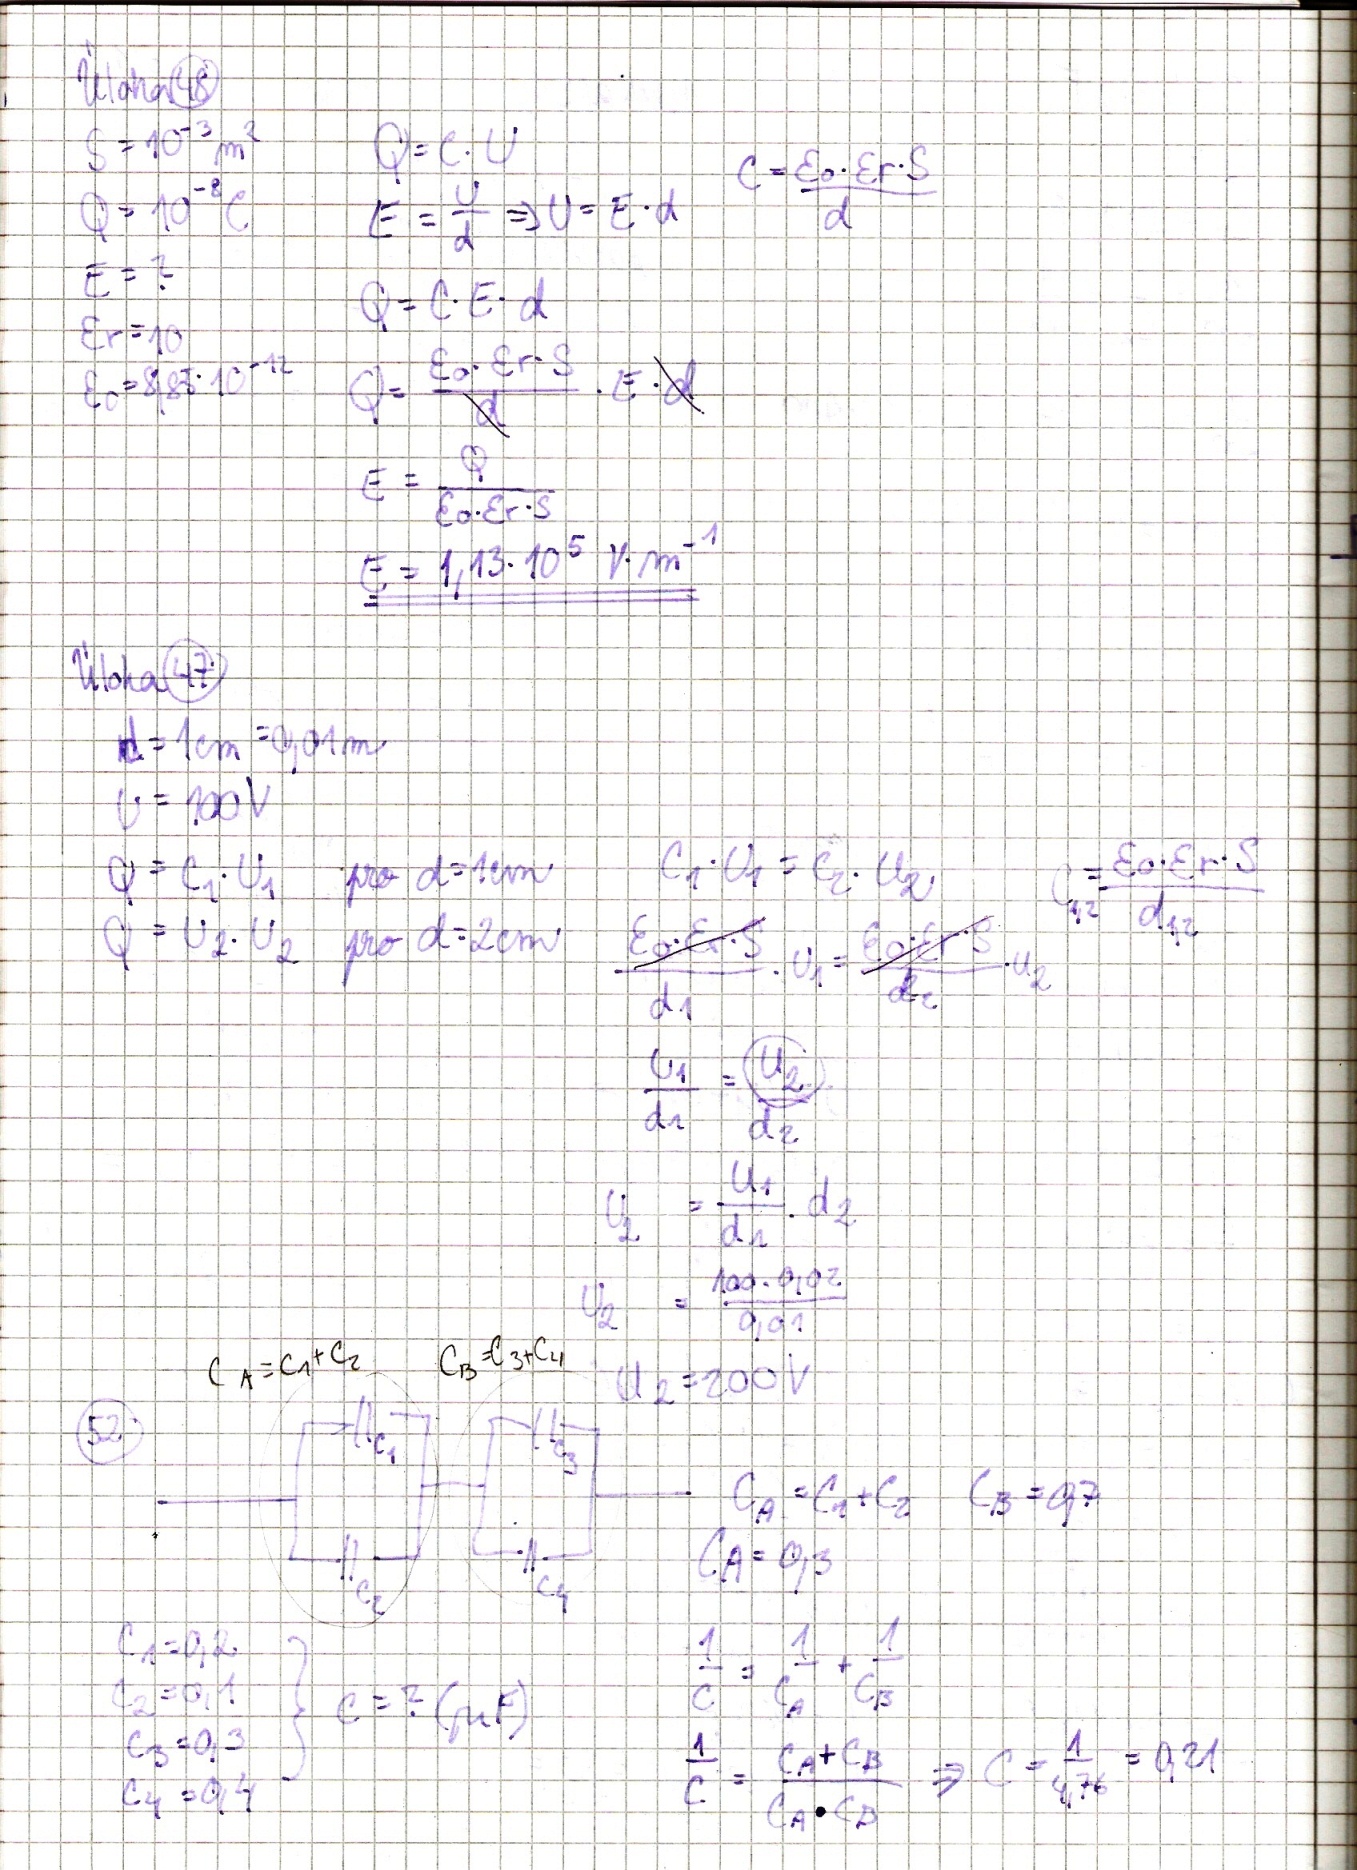 Úloha 48
S = 10⁻³ m²
Q = 10⁻⁸ C
E = ?
εr = 10
ε₀ = 8,85·10⁻¹²
Q = C·U
E = U/d ⇒ U = E·d
Q = C·E·d
Q = (ε₀·εr·S)/d · E·d
E = Q/(ε₀·εr·S)
E = 1,13·10⁵ V·m⁻¹
C = (ε₀·εr·S)/d
Úloha 47
d = 1cm = 0,01m
U = 100V
Q = C₁·U₁ pro d=1cm
Q = U₂·U₂ pro d=2cm
C₁·U₁ = C₂·U₂
C₁,₂ = (ε₀·εr·S)/d₁,₂
(ε₀·εr·S)/d₁ · U₁ = (ε₀·εr·S)/d₂ · U₂
U₁/d₁ = U₂/d₂
U₂ = U₁/d₁ · d₂
U₂ = (100·0,02)/0,01
U₂ = 200V
52
C_A = C₁+C₂
C_B = C₃+C₄
C₁
C₃
C₂
C₄
C_A = C₁+C₂ C_B = 0,7
C_A = 0,3
C₁ = 0,2
C₂ = 0,1
C₃ = 0,3
C₄ = 0,4
C = ? (μF)
1/C = 1/C_A + 1/C_B
1/C = (C_A+C_B)/(C_A•C_B) ⇒ C = 1/4,76 = 0,21